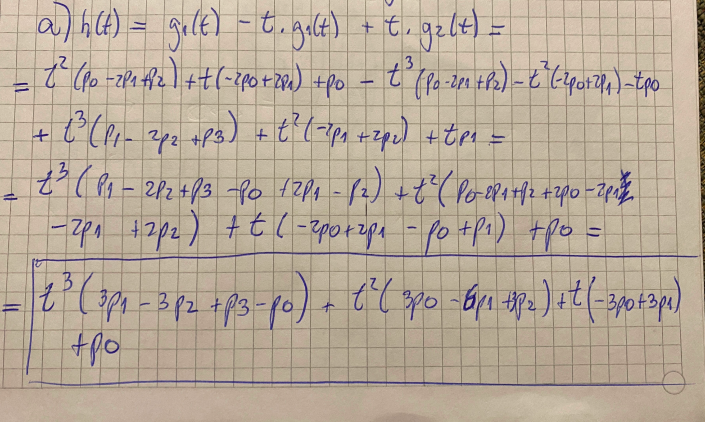 a) h(t) = g1(t) - t.g1(t) + t.g2(t) =
= t²(p0-2p1+p2)+t(-2p0+2p1)+p0 - t³(p0-2p1+p2)-t²(-2p0+2p1)-tp0
+ t³(p1-2p2+p3) + t²(-2p1+2p2) + tp1 =
= t³(p1-2p2+p3-p0+2p1-p2)+t²(p0-2p1+p2+2p0-2p1
-2p1+2p2) + t(-2p0+2p1-p0+p1) +p0 =
= t³(3p1-3p2+p3-p0) + t²(3p0-6p1+3p2)+t(-3p0+3p1)
+p0